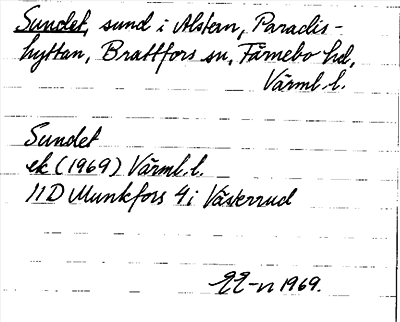 Sundet, sund i Alstern, Paradis-
hyttan, Brattfors sn, Färnebo hd,
Värml. l.
Sundet
ek (1969) Värml. l.
11D Munkfors 4i Västerrud
EE-n 1969.